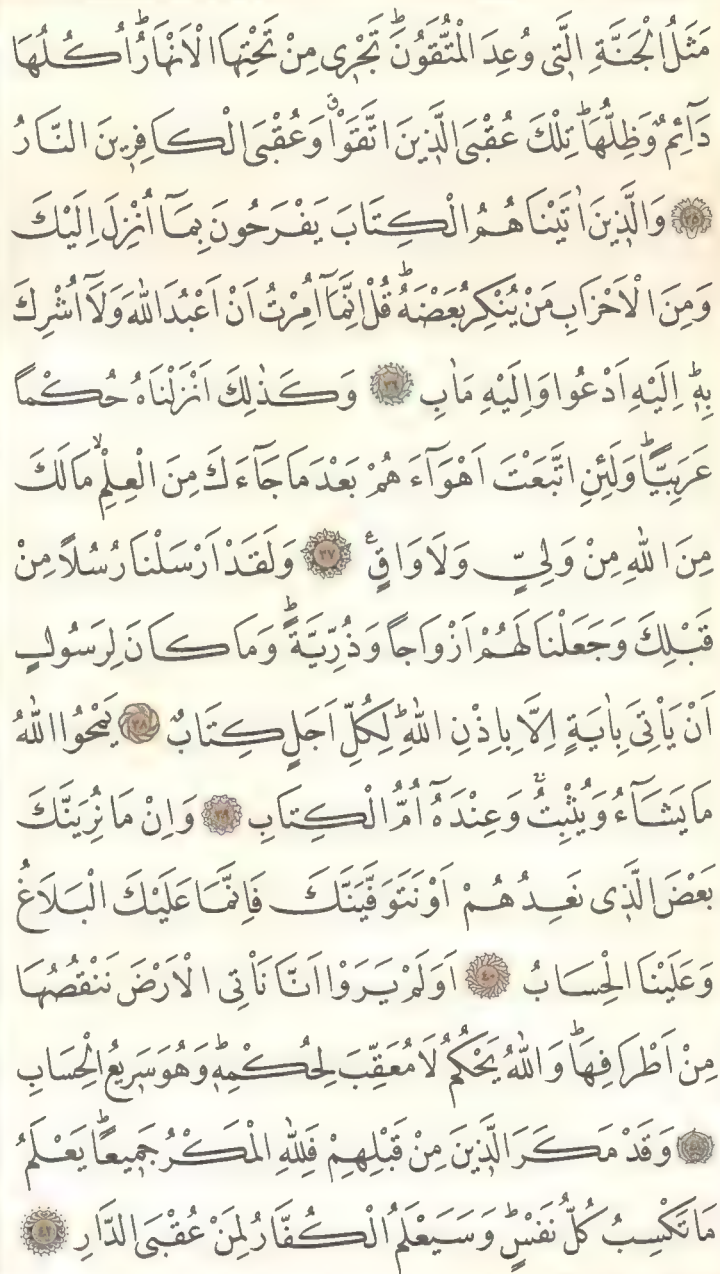 مَثَلُ الْجَنَّةِ الَّتٖى وُعِدَ الْمُتَّقُونَؕ تَجْرٖى مِنْ تَحْتِهَا الْاَنْهَارُؕ اُكُلُهَا
دَٓائِمٌ وَظِلُّهَاؕ تِلْكَ عُقْبَى الَّذٖينَ اتَّقَوْاۗ وَعُقْبَى الْكَافِرٖينَ النَّارُ
﴿٣٥﴾ وَالَّذٖينَ اٰتَيْنَاهُمُ الْكِتَابَ يَفْرَحُونَ بِمَٓا اُنْزِلَ اِلَيْكَ
وَمِنَ الْاَحْزَابِ مَنْ يُنْكِرُ بَعْضَهُؕ قُلْ اِنَّمَٓا اُمِرْتُ اَنْ اَعْبُدَ اللّٰهَ وَلَٓا اُشْرِكَ
بِهٖؕ اِلَيْهِ اَدْعُوا وَاِلَيْهِ مَاٰبِ ﴿٣٦﴾ وَكَذٰلِكَ اَنْزَلْنَاهُ حُكْمًا
عَرَبِيًّاؕ وَلَئِنِ اتَّبَعْتَ اَهْوَٓاءَهُمْ بَعْدَ مَا جَٓاءَكَ مِنَ الْعِلْمِۙ مَا لَكَ
مِنَ اللّٰهِ مِنْ وَلِىٍّ وَلَا وَاقٍ ﴿٣٧﴾ وَلَقَدْ اَرْسَلْنَا رُسُلًا مِنْ
قَبْلِكَ وَجَعَلْنَا لَهُمْ اَزْوَاجًا وَذُرِّيَّةًؕ وَمَا كَانَ لِرَسُولٍ
اَنْ يَاْتِىَ بِاٰيَةٍ اِلَّا بِاِذْنِ اللّٰهِؕ لِكُلِّ اَجَلٍ كِتَابٌ ﴿٣٨﴾ يَمْحُوا اللّٰهُ
مَا يَشَٓاءُ وَيُثْبِتُۚ وَعِنْدَهُٓ اُمُّ الْكِتَابِ ﴿٣٩﴾ وَاِنْ مَا نُرِيَنَّكَ
بَعْضَ الَّذٖى نَعِدُهُمْ اَوْ نَتَوَفَّيَنَّكَ فَاِنَّمَا عَلَيْكَ الْبَلَاغُ
وَعَلَيْنَا الْحِسَابُ ﴿٤٠﴾ اَوَلَمْ يَرَوْا اَنَّا نَاْتِى الْاَرْضَ نَنْقُصُهَا
مِنْ اَطْرَافِهَاؕ وَاللّٰهُ يَحْكُمُ لَا مُعَقِّبَ لِحُكْمِهٖؕ وَهُوَ سَرٖيعُ الْحِسَابِ
﴿٤١﴾ وَقَدْ مَكَرَ الَّذٖينَ مِنْ قَبْلِهِمْ فَلِلّٰهِ الْمَكْرُ جَمٖيعًاؕ يَعْلَمُ
مَا تَكْسِبُ كُلُّ نَفْسٍؕ وَسَيَعْلَمُ الْكُفَّارُ لِمَنْ عُقْبَى الدَّارِ ﴿٤٢﴾